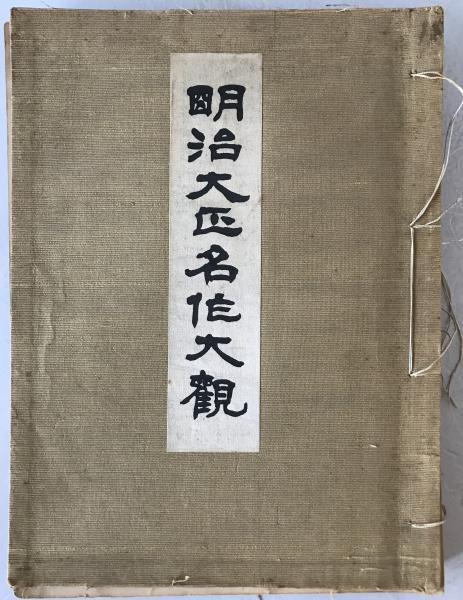 明治大正名作大觀